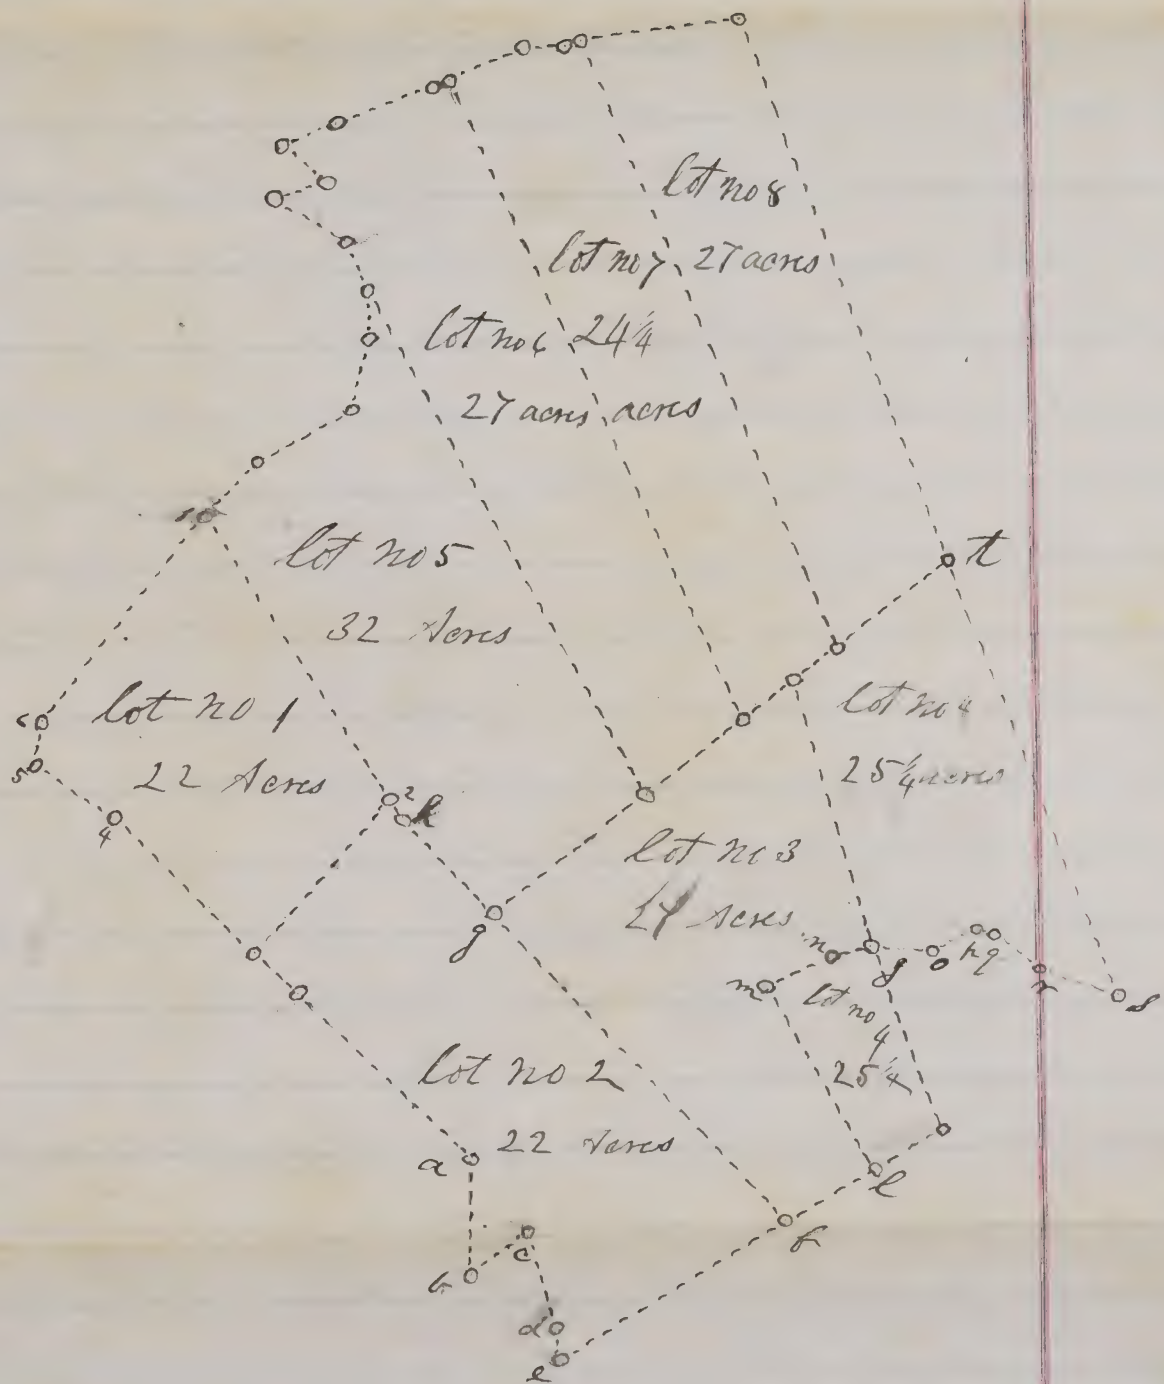 lot no 8
27 acres
lot no 7
24 1/4
acres
lot no 6
27 acres
lot no 5
32 Acres
t
1
lot no 1
22 Acres
5
4
2
k
lot no 4
25 1/4 acres
lot no 3
Acres
g
n
m
o
q
r
s
lot no
4
25 1/4
lot no 2
22 Acres
a
l
f
b
c
d
e